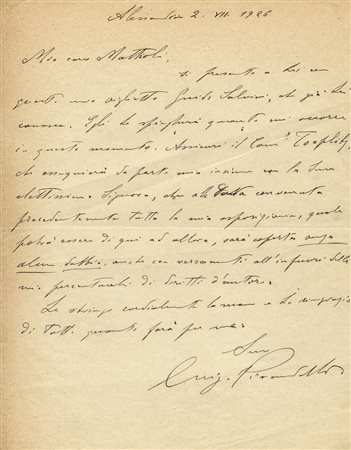 Alessandria 2. VII 1926
Mio caro Mattioli,
si presenta a Lei con
questo mio biglietto Guido Salvini, che già Lei
conosce. Egli Le spiegherà quanto mi occorre
in questo momento. Assicuri il Com. Toeplitz,
che ossequierà da parte mia insieme con la Sua
elettissima Signora, che alla data convenuta
precedentemente tutta la mia esposizione, quale
potrà essere di qui ad allora, sarà coperta senza
alcun dubbio, anche con versamenti all'infuori delle
mie percentuali di diritti d'autore.
Le stringo cordialmente la mano e La ringrazio
di tutto quanto farà per me.
Suo
Luigi Pirandello